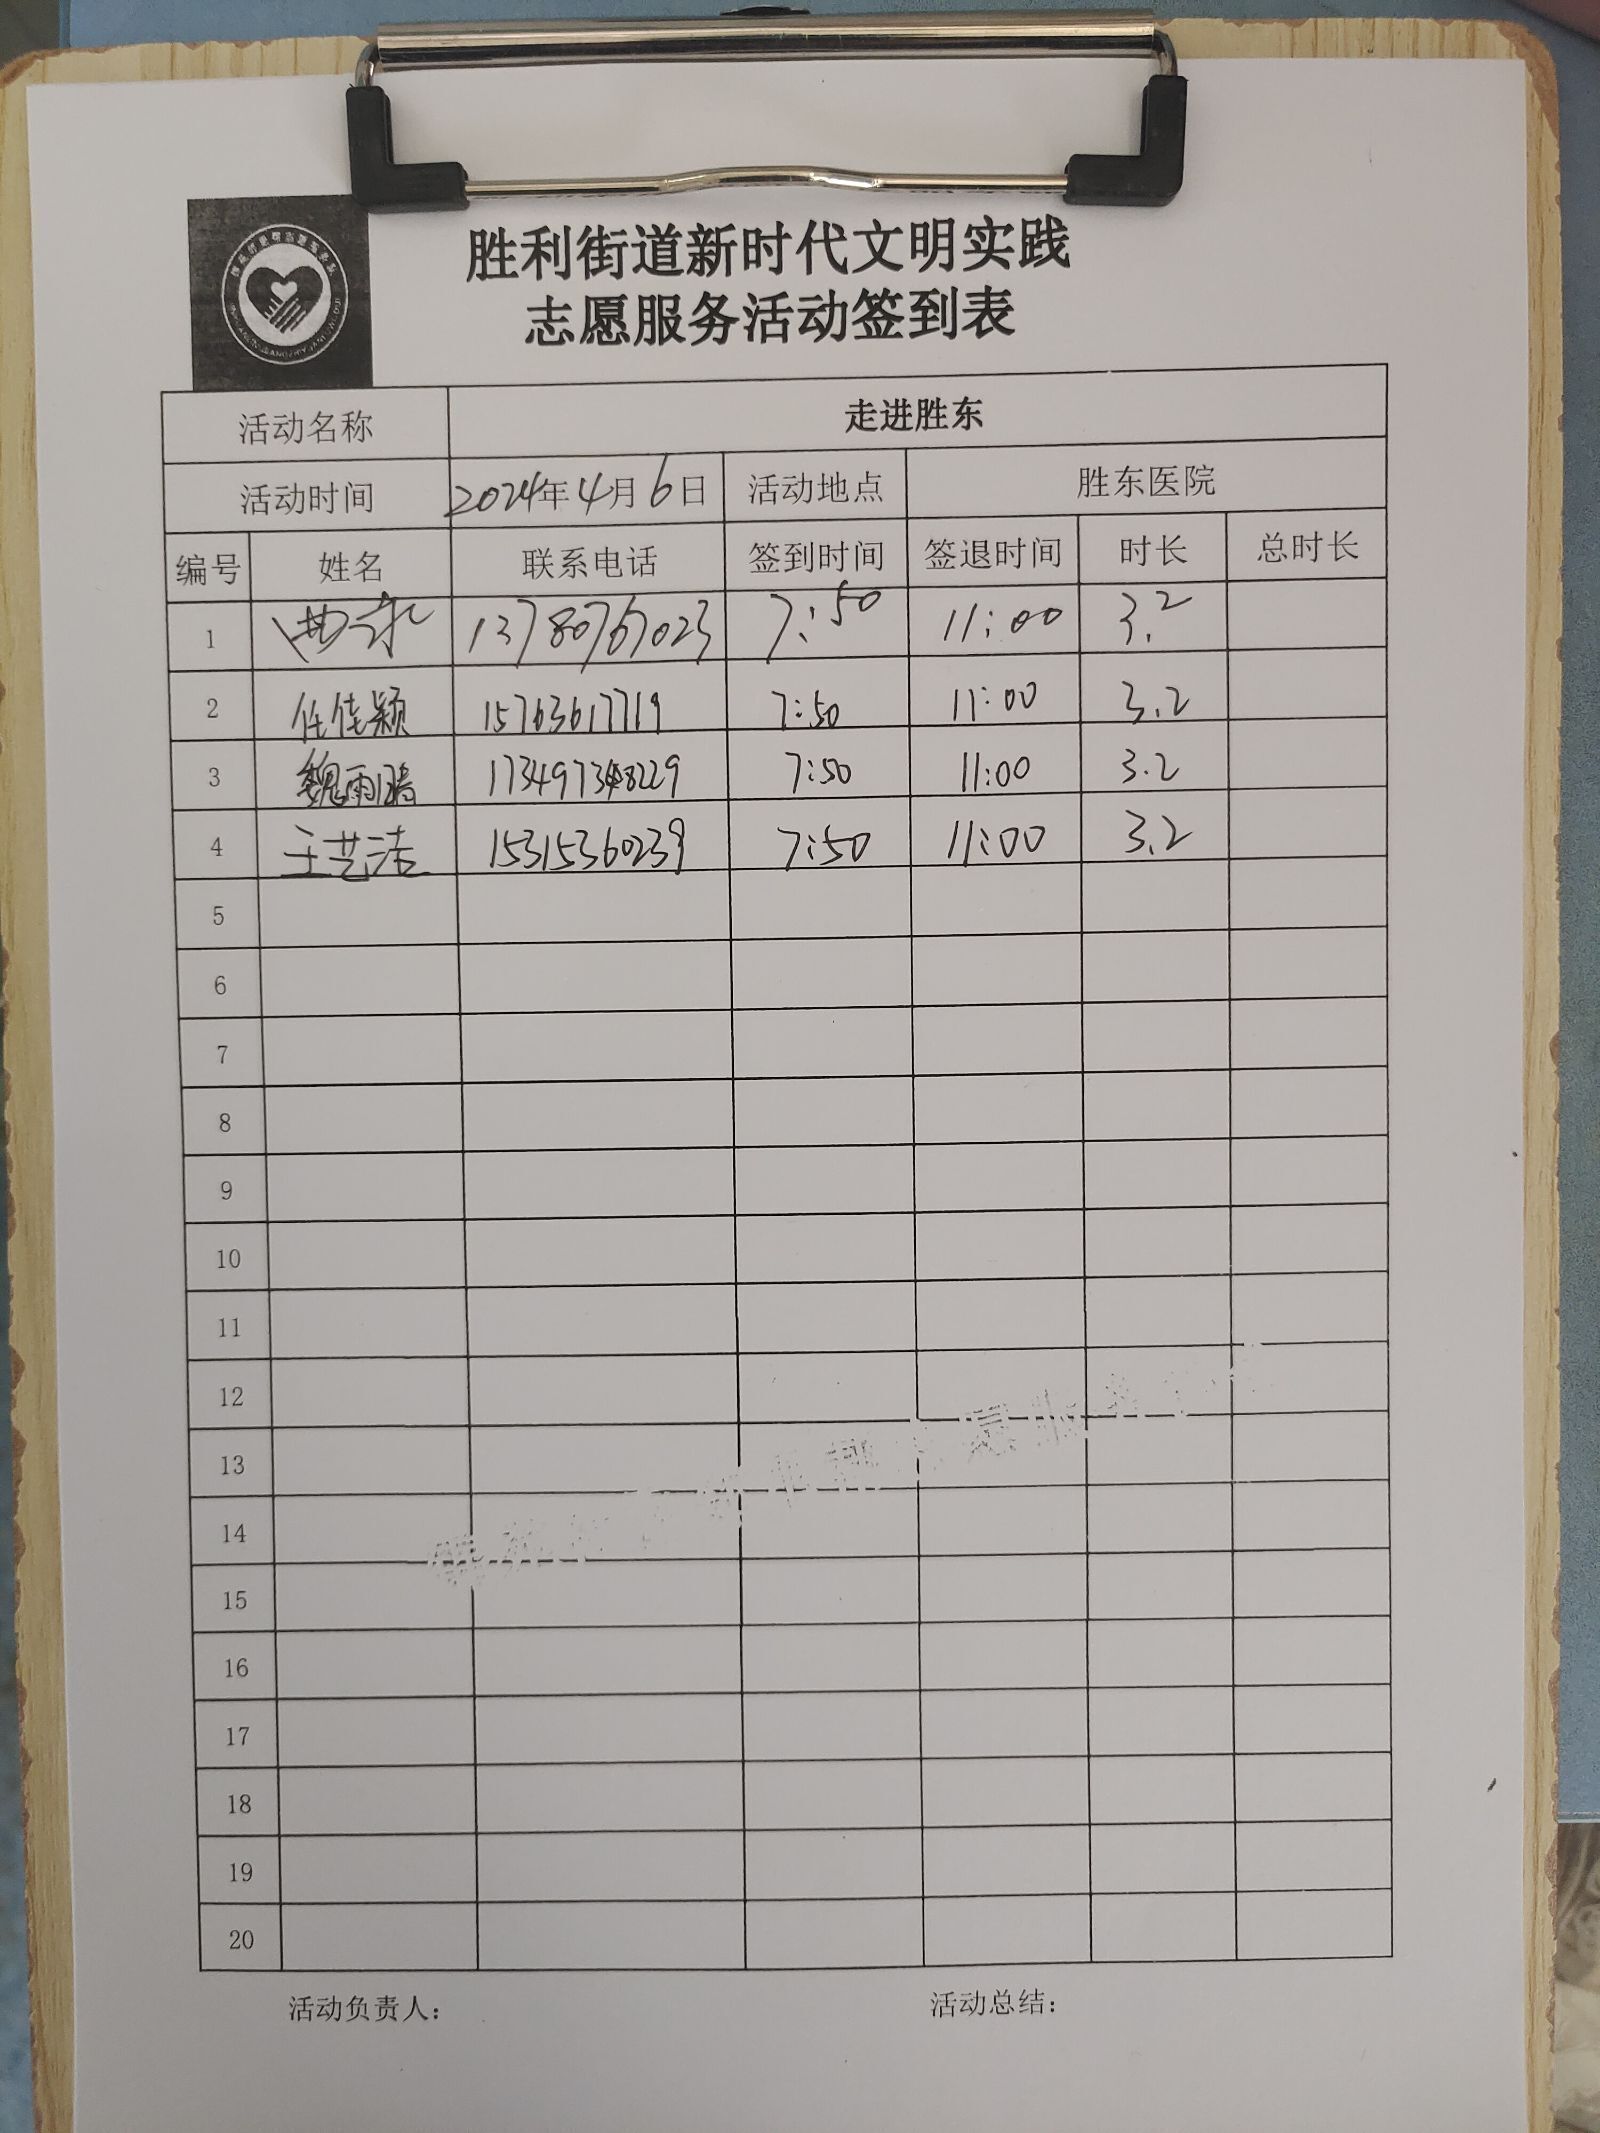 胜利街道新时代文明实践
志愿服务活动签到表
活动名称 走进胜东
活动时间 2024年4月6日 活动地点 胜东医院
编号 姓名 联系电话 签到时间 签退时间 时长 总时长
1 曲永 13780767023 7:50 11:00 3.2
2 任佳颖 15763617719 7:50 11:00 3.2
3 魏雨 7:50 11:00 3.2
4 王艺洁 15315360239 7:50 11:00 3.2
5
6
7
8
9
10
11
12
13
14
15
16
17
18
19
20
活动负责人: 活动总结: